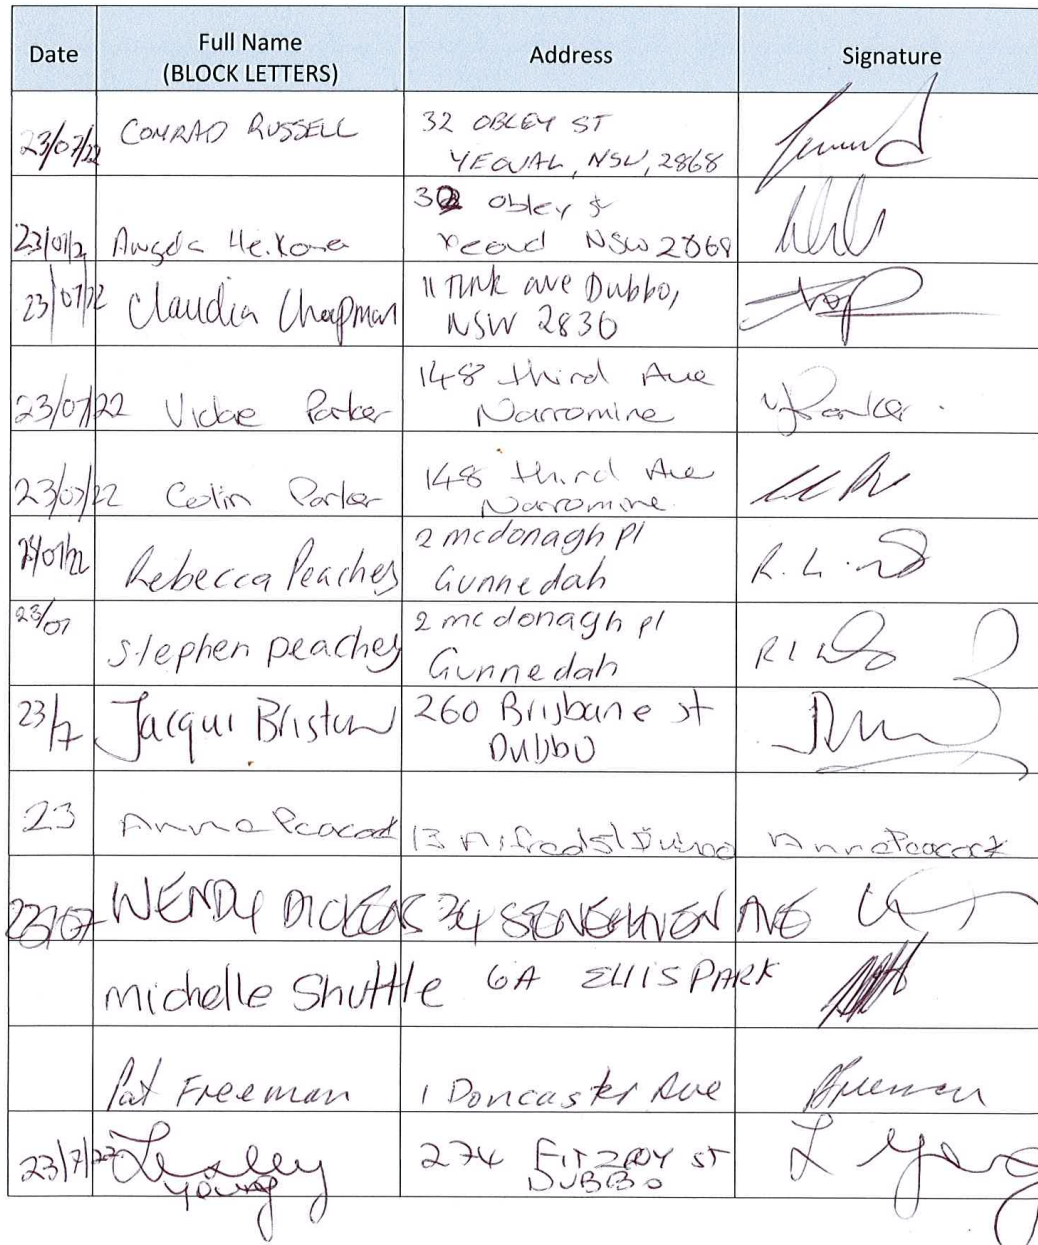 Date Full Name Address Signature
(BLOCK LETTERS)
23/07/22 CONRAD RUSSELL 32 OBLEY ST
YEOVAL, NSW, 2868
32 Obley St
23/07/2 Angela NSW 2868
23/07/22 Claudia Chapman 11 Tink ave Dubbo,
NSW 2830
23/07/22 Vickie Parker 148 third Ave Parker.
Narromine
23/07/22 Colin Parker 148 third Ave
Narromine.
23/07/22 Rebecca Peachey 2 mcdonagh pl R. L.
Gunnedah
23/07 Stephen peachey 2 mcdonagh pl
Gunnedah
23/7 Jacqui Bristow 260 Brisbane st
Dubbo
23 Anne Peacock 13 Alfred St Dubbo Anne Peacock
23/07 WENDY DICKENS 34 STONEHAVEN AVE
michelle Shuttle 6A EllIS PARK
Pat Freeman 1 Doncaster Ave Freeman
23/7/22 Lesley 274 FITZROY ST L Young
young DUBBO